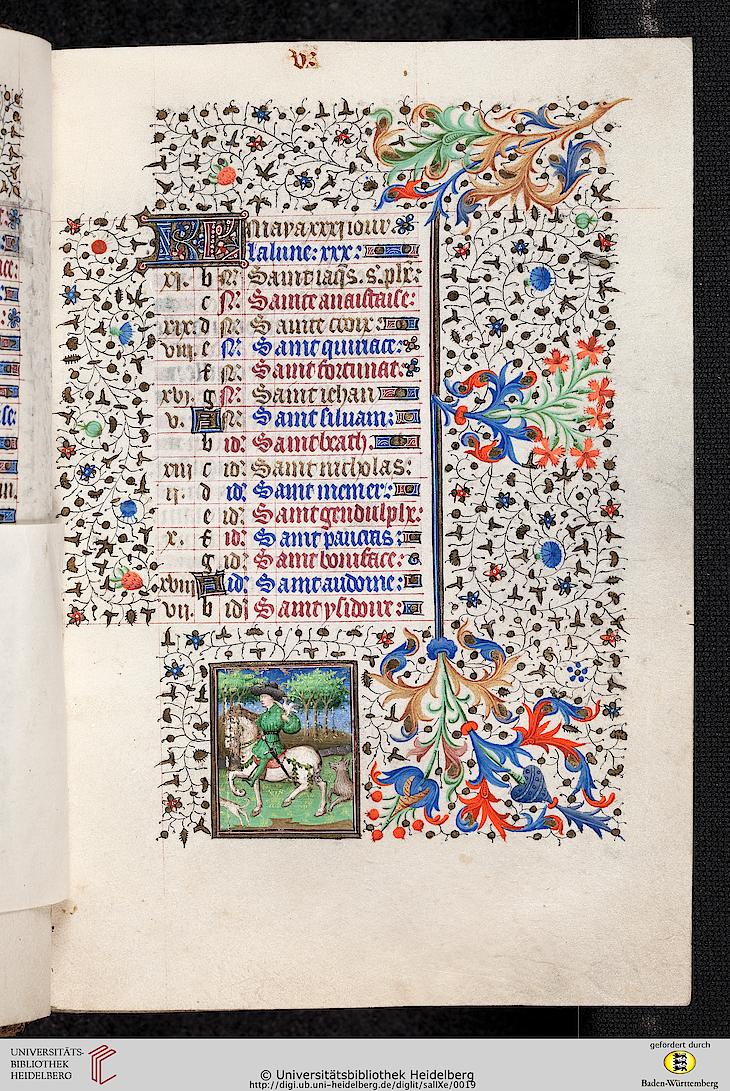 KL May a xxxi iour.
la lune: xxx:
xi. b N: Saint iaq̃s. s. phe:
c N: Sainte anaistaise:
xix d N: Sainte croix:
viii e N: Saint quiriace:
f N: Saint fortunat:
xvi. g N: Saint iehan
v. A N: Saint siluain:
b id: Saint beath.
xiii c id: Saint nicholas:
ii. d id: Saint memer:
e id: Saint gendulphe:
x. f id: Saint pancras:
g id: Saint boniface:
xviii A id: Saint audoine:
vii. b id: Saint ysidoire:
UNIVERSITÄTS-
BIBLIOTHEK
HEIDELBERG
© Universitätsbibliothek Heidelberg
http://digi.ub.uni-heidelberg.de/diglit/salIXe/0019
gefördert durch
Baden-Württemberg